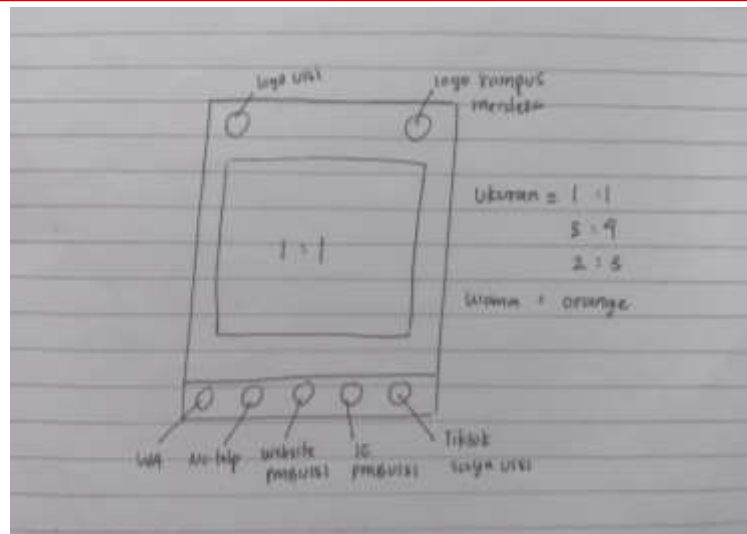 logo UISI
logo kampus
merdeka
1 : 1
Ukuran = 1 : 1
3 : 4
2 : 3
Warna : orange
WA
No telp
Website
PMBUISI
IG
PMBUISI
Tiktok
UISI